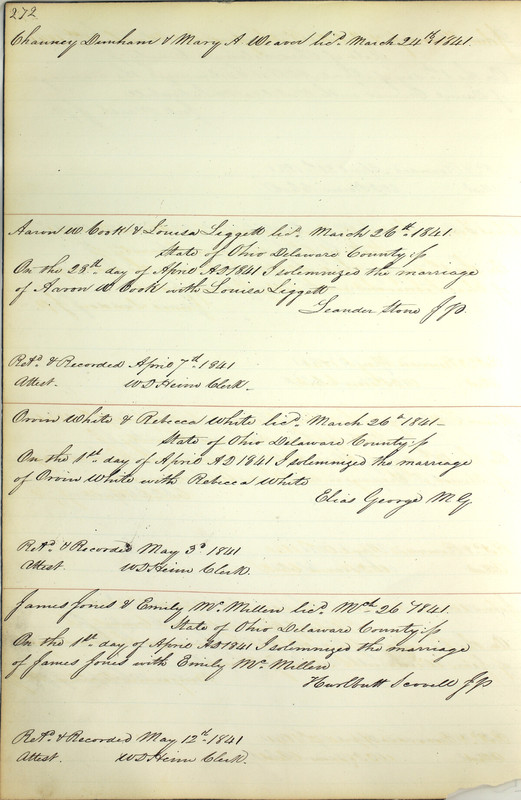 272
Chauncy Dunham & Mary A Weaver lics. March 24th 1841.
Aaron W Cook & Louisa Liggett lics. March 26th 1841.
State of Ohio Delaware County ss
On the 28th day of April AD 1841 I solemnized the marriage
of Aaron W Cook with Louisa Liggett
Leander Stone J.P.
Retd. & Recorded April 7th 1841
Attest. W D Heim Clerk.
Orvin White & Rebecca White licd. March 26th 1841–
State of Ohio Delaware County ss
On the 1st day of April AD 1841 I solemnized the marriage
of Orvin White with Rebecca White
Elias George M.G.
Retd. & Recorded May 3d 1841
Attest. W D Heim Clerk.
James Jones & Emily Mc Millen licd. Mch 26 1841.
State of Ohio Delaware County ss
On the 1st day of April AD 1841 I solemnized the marriage
of James Jones with Emily Mc Millen
Hurlbutt Scovell J P
Retd. & Recorded May 12th 1841
Attest. W D Heim Clerk.